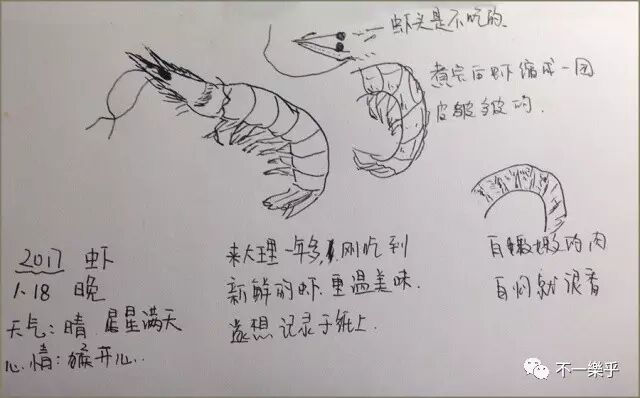 虾头是不吃的.
煮完后虾缩成一团
皮皱皱的.
2017 虾
1.18 晚
天气: 晴 星星满天
心情: 猴开心..
来大理一年多, 刚吃到
新鲜的虾.重温美味.
遂想记录于纸上.
白嫩嫩的肉
白焖就很香
不一樂乎